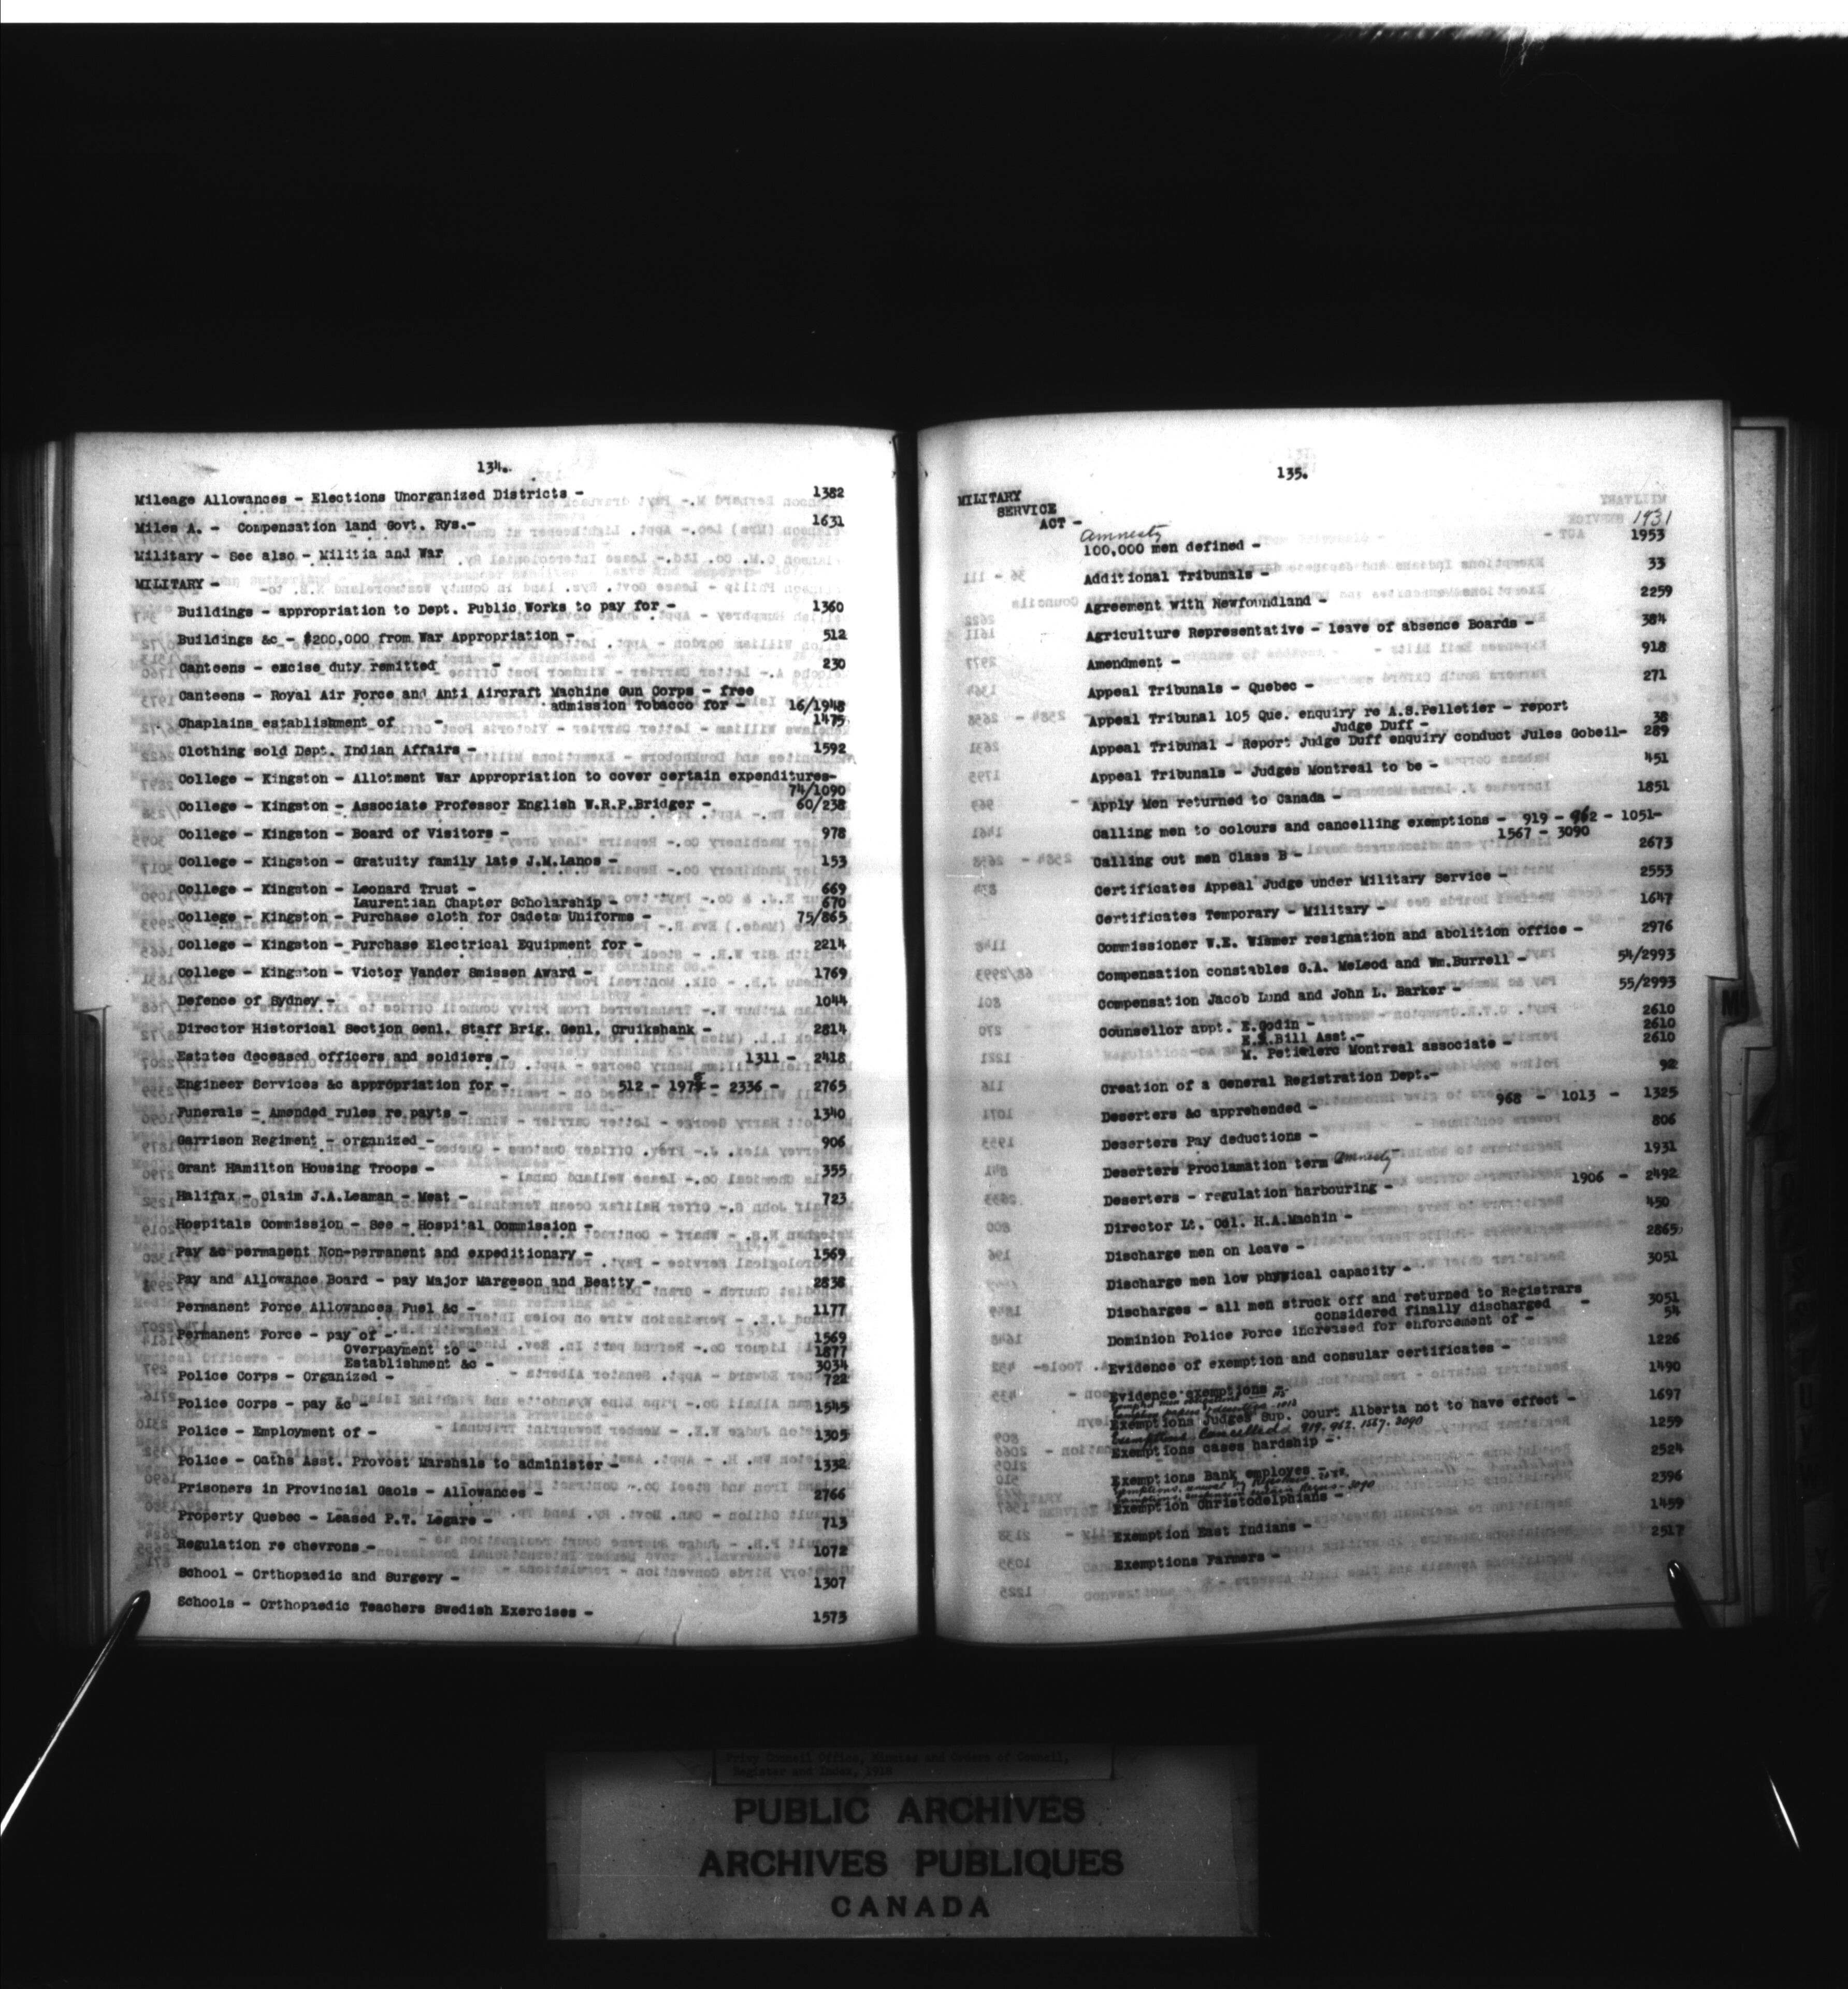 134.
Mileage Allowances - Elections Unorganized Districts - 1382
Miles A. - Compensation land Govt. Rys.- 1631
Military - See also - Militia and War
MILITARY -
Buildings - appropriation to Dept. Public Works to pay for - 1360
Buildings &c - $200,000 from War Appropriation - 512
Canteens - excise duty remitted - 230
Canteens - Royal Air Force and Anti Aircraft Machine Gun Corps - free
admission Tobacco for - 16/1948
Chaplains establishment of - 1475
Clothing sold Dept. Indian Affairs - 1592
College - Kingston - Allotment War Appropriation to cover certain expenditures-
74/1090
College - Kingston - Associate Professor English W.R.P.Bridger - 60/238
College - Kingston - Board of Visitors - 978
College - Kingston - Gratuity family late J.M.Lanos - 153
College - Kingston - Leonard Trust - 669
Laurentian Chapter Scholarship - 670
College - Kingston - Purchase cloth for Cadets Uniforms - 75/865
College - Kingston - Purchase Electrical Equipment for - 2214
College - Kingston - Victor Vander Smissen Award - 1769
Defence of Sydney - 1044
Director Historical Section Genl. Staff Brig. Genl. Cruikshank - 2814
Estates deceased officers and soldiers - 1311 - 2418
Engineer Services &c appropriation for - 512 - - 2336 - 2765
Funerals - Amended rules re payts - 1340
Garrison Regiment - organized - 906
Grant Hamilton Housing Troops - 355
Halifax - Claim J.A.Leaman - Meat - 723
Hospitals Commission - See - Hospital Commission -
Pay &c permanent Non-permanent and expeditionary - 1569
Pay and Allowance Board - pay Major Margeson and Beatty - 2838
Permanent Force Allowances Fuel &c - 1177
Permanent Force - pay of - 1569
Overpayment to - 1877
Establishment &c - 3034
Police Corps - Organized - 722
Police Corps - pay &c - 1545
Police - Employment of - 1305
Police - Oaths Asst. Provost Marshals to administer - 1332
Prisoners in Provincial Gaols - Allowances - 2766
Property Quebec - Leased P.T. Legare - 713
Regulation re chevrons - 1072
School - Orthopaedic and Surgery - 1307
Schools - Orthopaedic Teachers Swedish Exercises - 1573
135.
MILITARY
SERVICE
ACT -
Amnesty 1931
100,000 men defined - 1953
Additional Tribunals - 33
Agreement with Newfoundland - 2259
Agriculture Representative - leave of absence Boards - 384
Amendment - 918
Appeal Tribunals - Quebec - 271
Appeal Tribunal 105 Que. enquiry re A.S.Pelletier - report
Judge Duff - 38
Appeal Tribunal - Report Judge Duff enquiry conduct Jules Gobeil- 289
Appeal Tribunals - Judges Montreal to be - 451
Apply Men returned to Canada - 1851
Calling men to colours and cancelling exemptions - 919 - 962 - 1051-
1567 - 3090
Calling out men Class B - 2673
Certificates Appeal Judge under Military Service - 2553
Certificates Temporary - Military - 1647
Commissioner W.E. Wismer resignation and abolition office - 2976
Compensation constables G.A. McLeod and Wm.Burrell - 54/2993
Compensation Jacob Lund and John L. Barker - 55/2993
Counsellor appt. E.Godin - 2610
Bill Asst.- 2610
M. Petielerc Montreal associate - 2610
Creation of a General Registration Dept.- 92
Deserters &c apprehended - 968 - 1013 - 1325
Deserters Pay deductions - 806
Deserters Proclamation term Amnesty - 1931
Deserters - regulation harbouring - 1906 - 2492
Director Lt. Col. H.A.Machin - 450
Discharge men on leave - 2865
Discharge men low physical capacity - 3051
Discharges - all men struck off and returned to Registrars
considered finally discharged - 3051
Dominion Police Force increased for enforcement of - 54
Evidence of exemption and consular certificates - 1226
Evidence exemptions - 1490
Exemptions Judges Sup. Court Alberta not to have effect - 1697
Exemptions Cancelled 919. 962. 1567. 3090
Exemptions cases hardship - 1259
Exemptions Bank employes - 2524
Exemption Christodelphians - 2396
Exemption East Indians - 1459
Exemptions Farmers - 2517
Privy Council Office, Minutes and Orders of Council,
Register and Index, 1918
PUBLIC ARCHIVES
ARCHIVES PUBLIQUES
CANADA